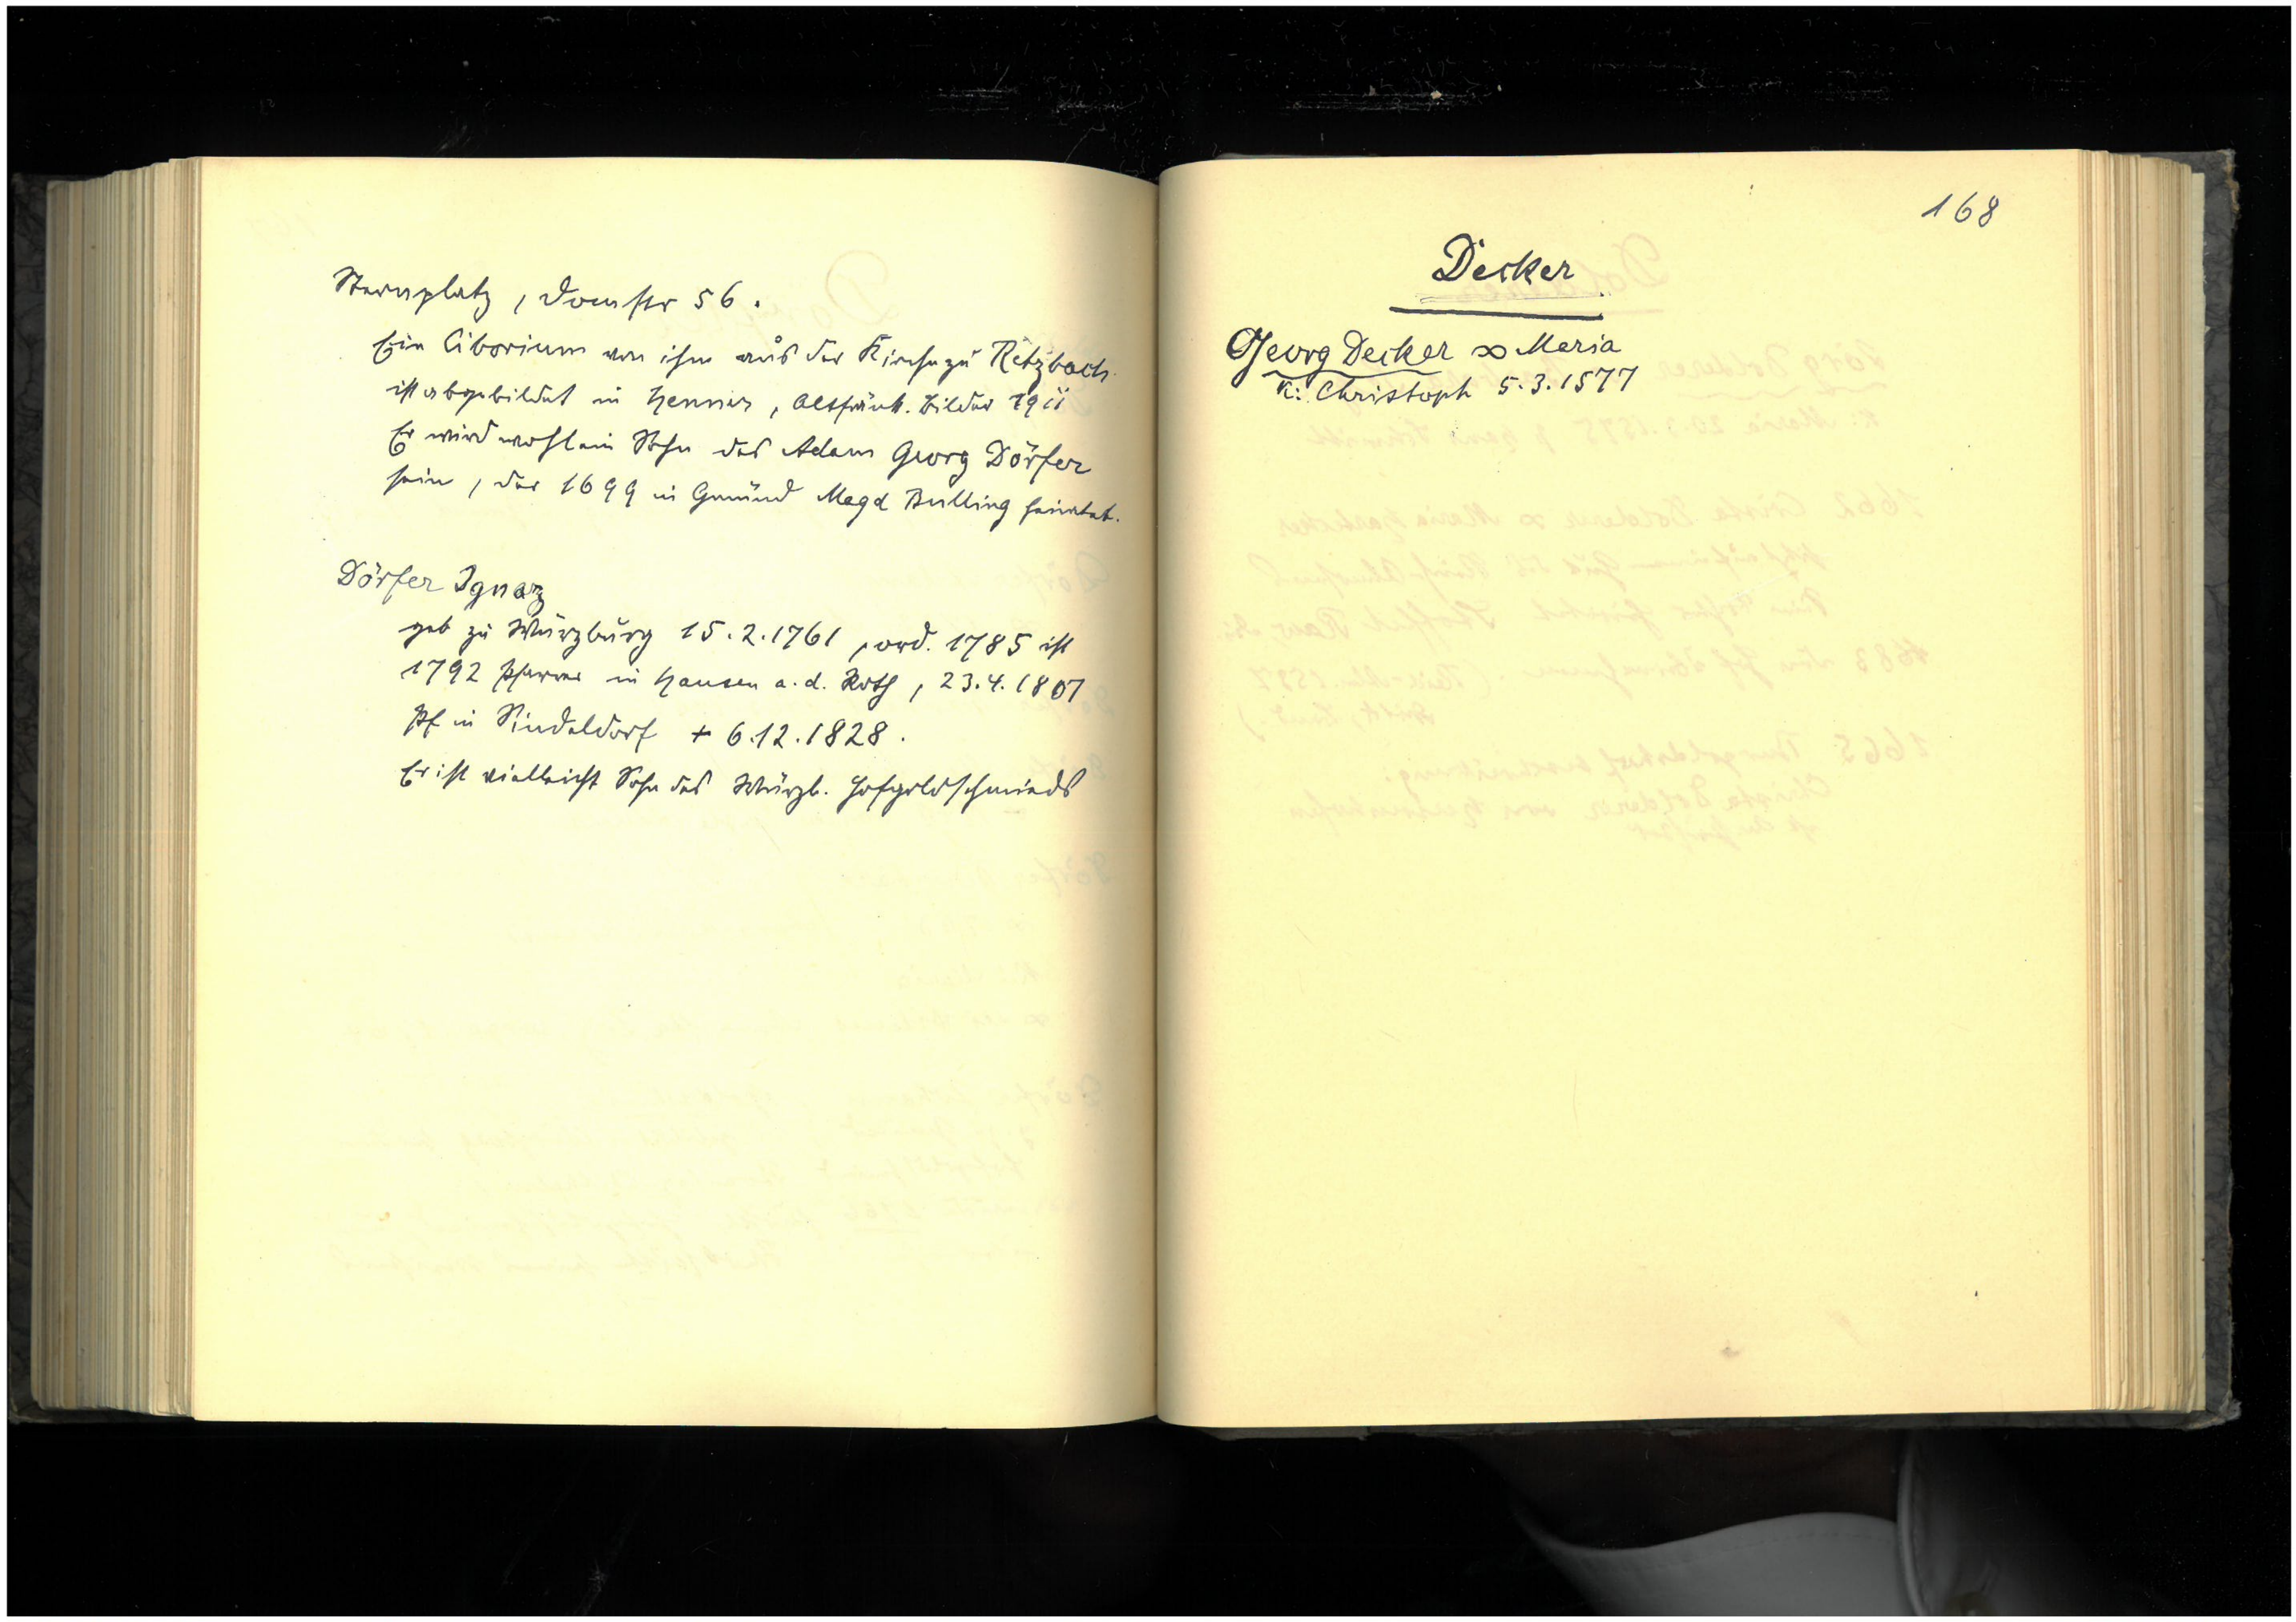 Sternplatz, Domstr 56.
Ein Ciborium von ihm aus der Kirche zu Retzbach
ist abgebildet in Henner, Altfränk. Bilder 1911
Er wird wohl ein Sohn des Adam Georg Dörfer
sein, der 1699 in Gmünd Magd Bulling heiratet.
Dörfer Ignaz
geb zu Würzburg 15.2.1761, ord. 1785 ist
1792 Pfarrer in Hausen a.d. Roth, 23.4.1807
Pf in Sindeldorf + 6.12.1828.
Er ist vielleicht Sohn des Würzb. Hofgoldschmieds
168
Decker
Georg Decker ∞ Maria
K: Christoph 5.3.1577